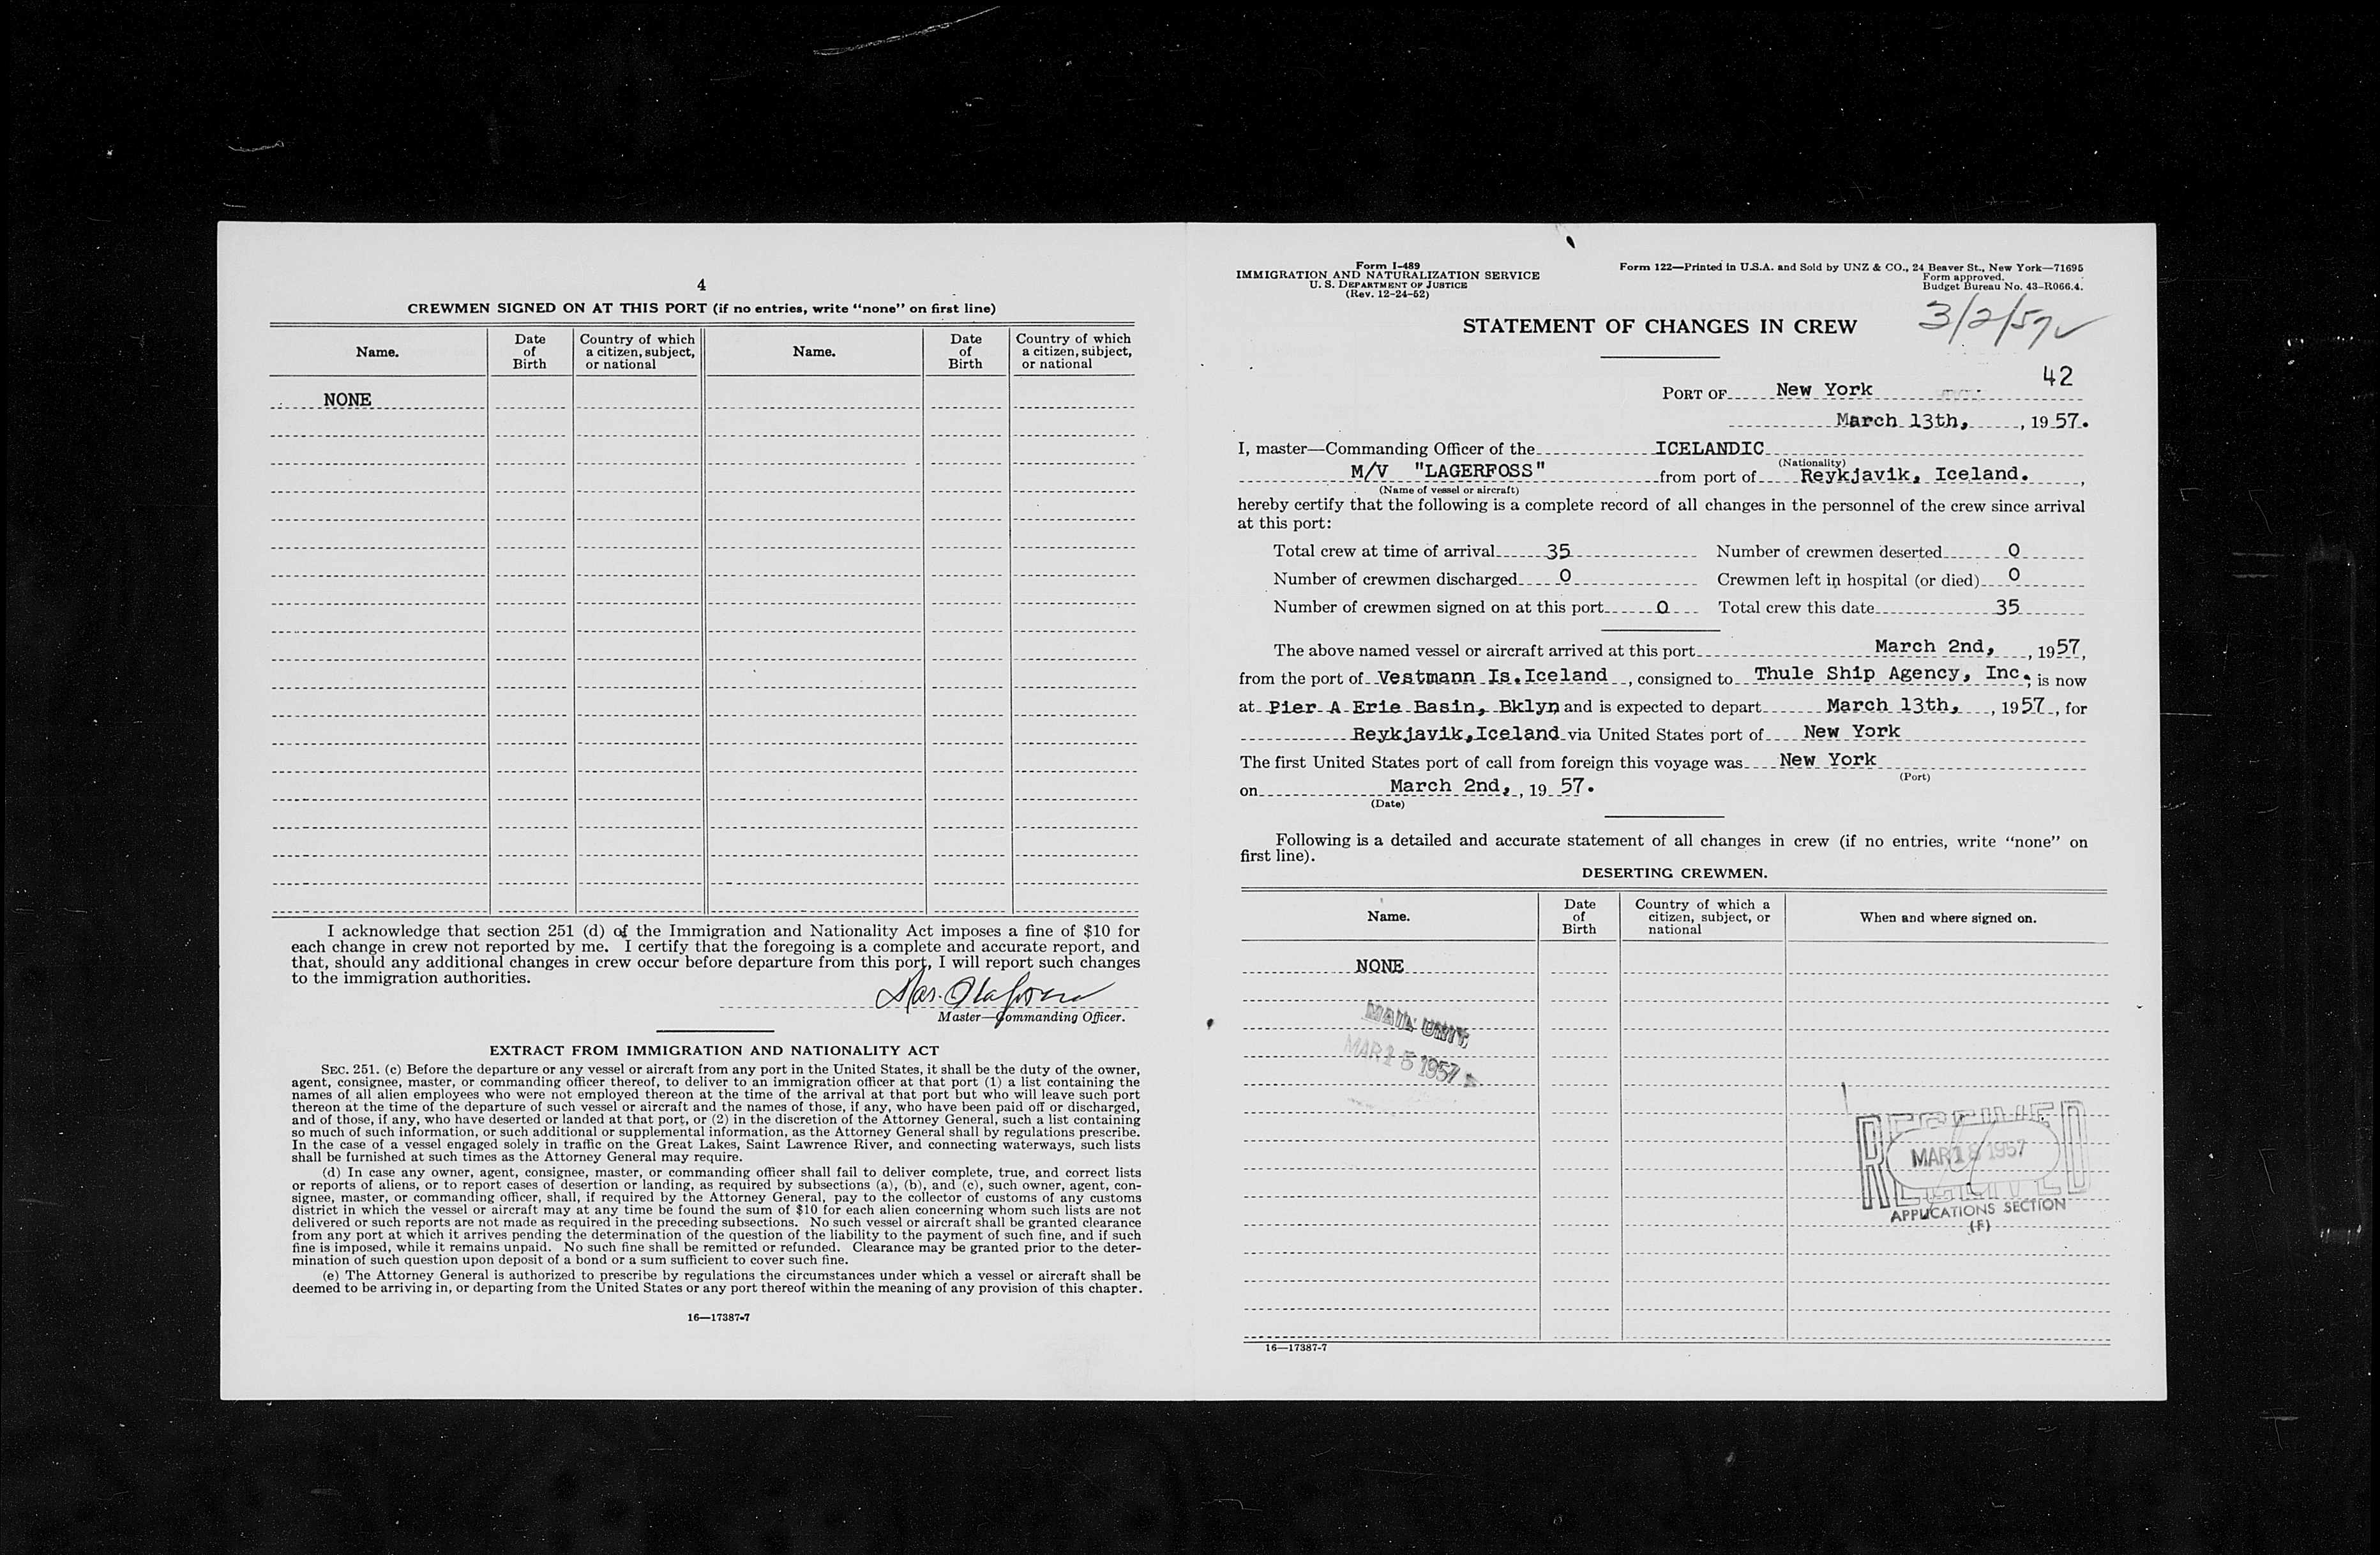 4
CREWMEN SIGNED ON AT THIS PORT (if no entries, write "none" on first line)
Name. Date of Birth Country of which a citizen, subject, or national Name. Date of Birth Country of which a citizen, subject, or national
NONE
I acknowledge that section 251 (d) of the Immigration and Nationality Act imposes a fine of $10 for
each change in crew not reported by me. I certify that the foregoing is a complete and accurate report, and
that, should any additional changes in crew occur before departure from this port, I will report such changes
to the immigration authorities.
Master—Commanding Officer.
EXTRACT FROM IMMIGRATION AND NATIONALITY ACT
SEC. 251. (c) Before the departure or any vessel or aircraft from any port in the United States, it shall be the duty of the owner,
agent, consignee, master, or commanding officer thereof, to deliver to an immigration officer at that port (1) a list containing the
names of all alien employees who were not employed thereon at the time of the arrival at that port but who will leave such port
thereon at the time of the departure of such vessel or aircraft and the names of those, if any, who have been paid off or discharged,
and of those, if any, who have deserted or landed at that port, or (2) in the discretion of the Attorney General, such a list containing
so much of such information, or such additional or supplemental information, as the Attorney General shall by regulations prescribe.
In the case of a vessel engaged solely in traffic on the Great Lakes, Saint Lawrence River, and connecting waterways, such lists
shall be furnished at such times as the Attorney General may require.
(d) In case any owner, agent, consignee, master, or commanding officer shall fail to deliver complete, true, and correct lists
or reports of aliens, or to report cases of desertion or landing, as required by subsections (a), (b), and (c), such owner, agent, con-
signee, master, or commanding officer, shall, if required by the Attorney General, pay to the collector of customs of any customs
district in which the vessel or aircraft may at any time be found the sum of $10 for each alien concerning whom such lists are not
delivered or such reports are not made as required in the preceding subsections. No such vessel or aircraft shall be granted clearance
from any port at which it arrives pending the determination of the question of the liability to the payment of such fine, and if such
fine is imposed, while it remains unpaid. No such fine shall be remitted or refunded. Clearance may be granted prior to the deter-
mination of such question upon deposit of a bond or a sum sufficient to cover such fine.
(e) The Attorney General is authorized to prescribe by regulations the circumstances under which a vessel or aircraft shall be
deemed to be arriving in, or departing from the United States or any port thereof within the meaning of any provision of this chapter.
16—17387-7
Form I-489
IMMIGRATION AND NATURALIZATION SERVICE
U. S. DEPARTMENT OF JUSTICE
(Rev. 12-24-52)
Form 122—Printed in U.S.A. and Sold by UNZ & CO., 24 Beaver St., New York—71695
Form approved.
Budget Bureau No. 43-R066.4.
3/2/57
STATEMENT OF CHANGES IN CREW
42
PORT OF New York
March 13th, , 19 57.
I, master—Commanding Officer of the ICELANDIC
(Nationality)
M/V "LAGERFOSS" from port of Reykjavik, Iceland. ,
(Name of vessel or aircraft)
hereby certify that the following is a complete record of all changes in the personnel of the crew since arrival
at this port:
Total crew at time of arrival 35 Number of crewmen deserted 0
Number of crewmen discharged 0 Crewmen left in hospital (or died) 0
Number of crewmen signed on at this port 0 Total crew this date 35
The above named vessel or aircraft arrived at this port March 2nd, , 19 57,
from the port of Vestmann Is.Iceland , consigned to Thule Ship Agency, Inc., is now
at Pier A Erie Basin, Bklyn and is expected to depart March 13th, , 19 57 , for
Reykjavik,Iceland via United States port of New York
The first United States port of call from foreign this voyage was New York
(Port)
on March 2nd, , 19 57.
(Date)
Following is a detailed and accurate statement of all changes in crew (if no entries, write "none" on
first line).
DESERTING CREWMEN.
Name. Date of Birth Country of which a citizen, subject, or national When and where signed on.
NONE
MAIL UNIT
MAR 15 1957
RECEIVED
MAR 18 1957
RECEIVED
APPLICATIONS SECTION
(F)
16—17387-7